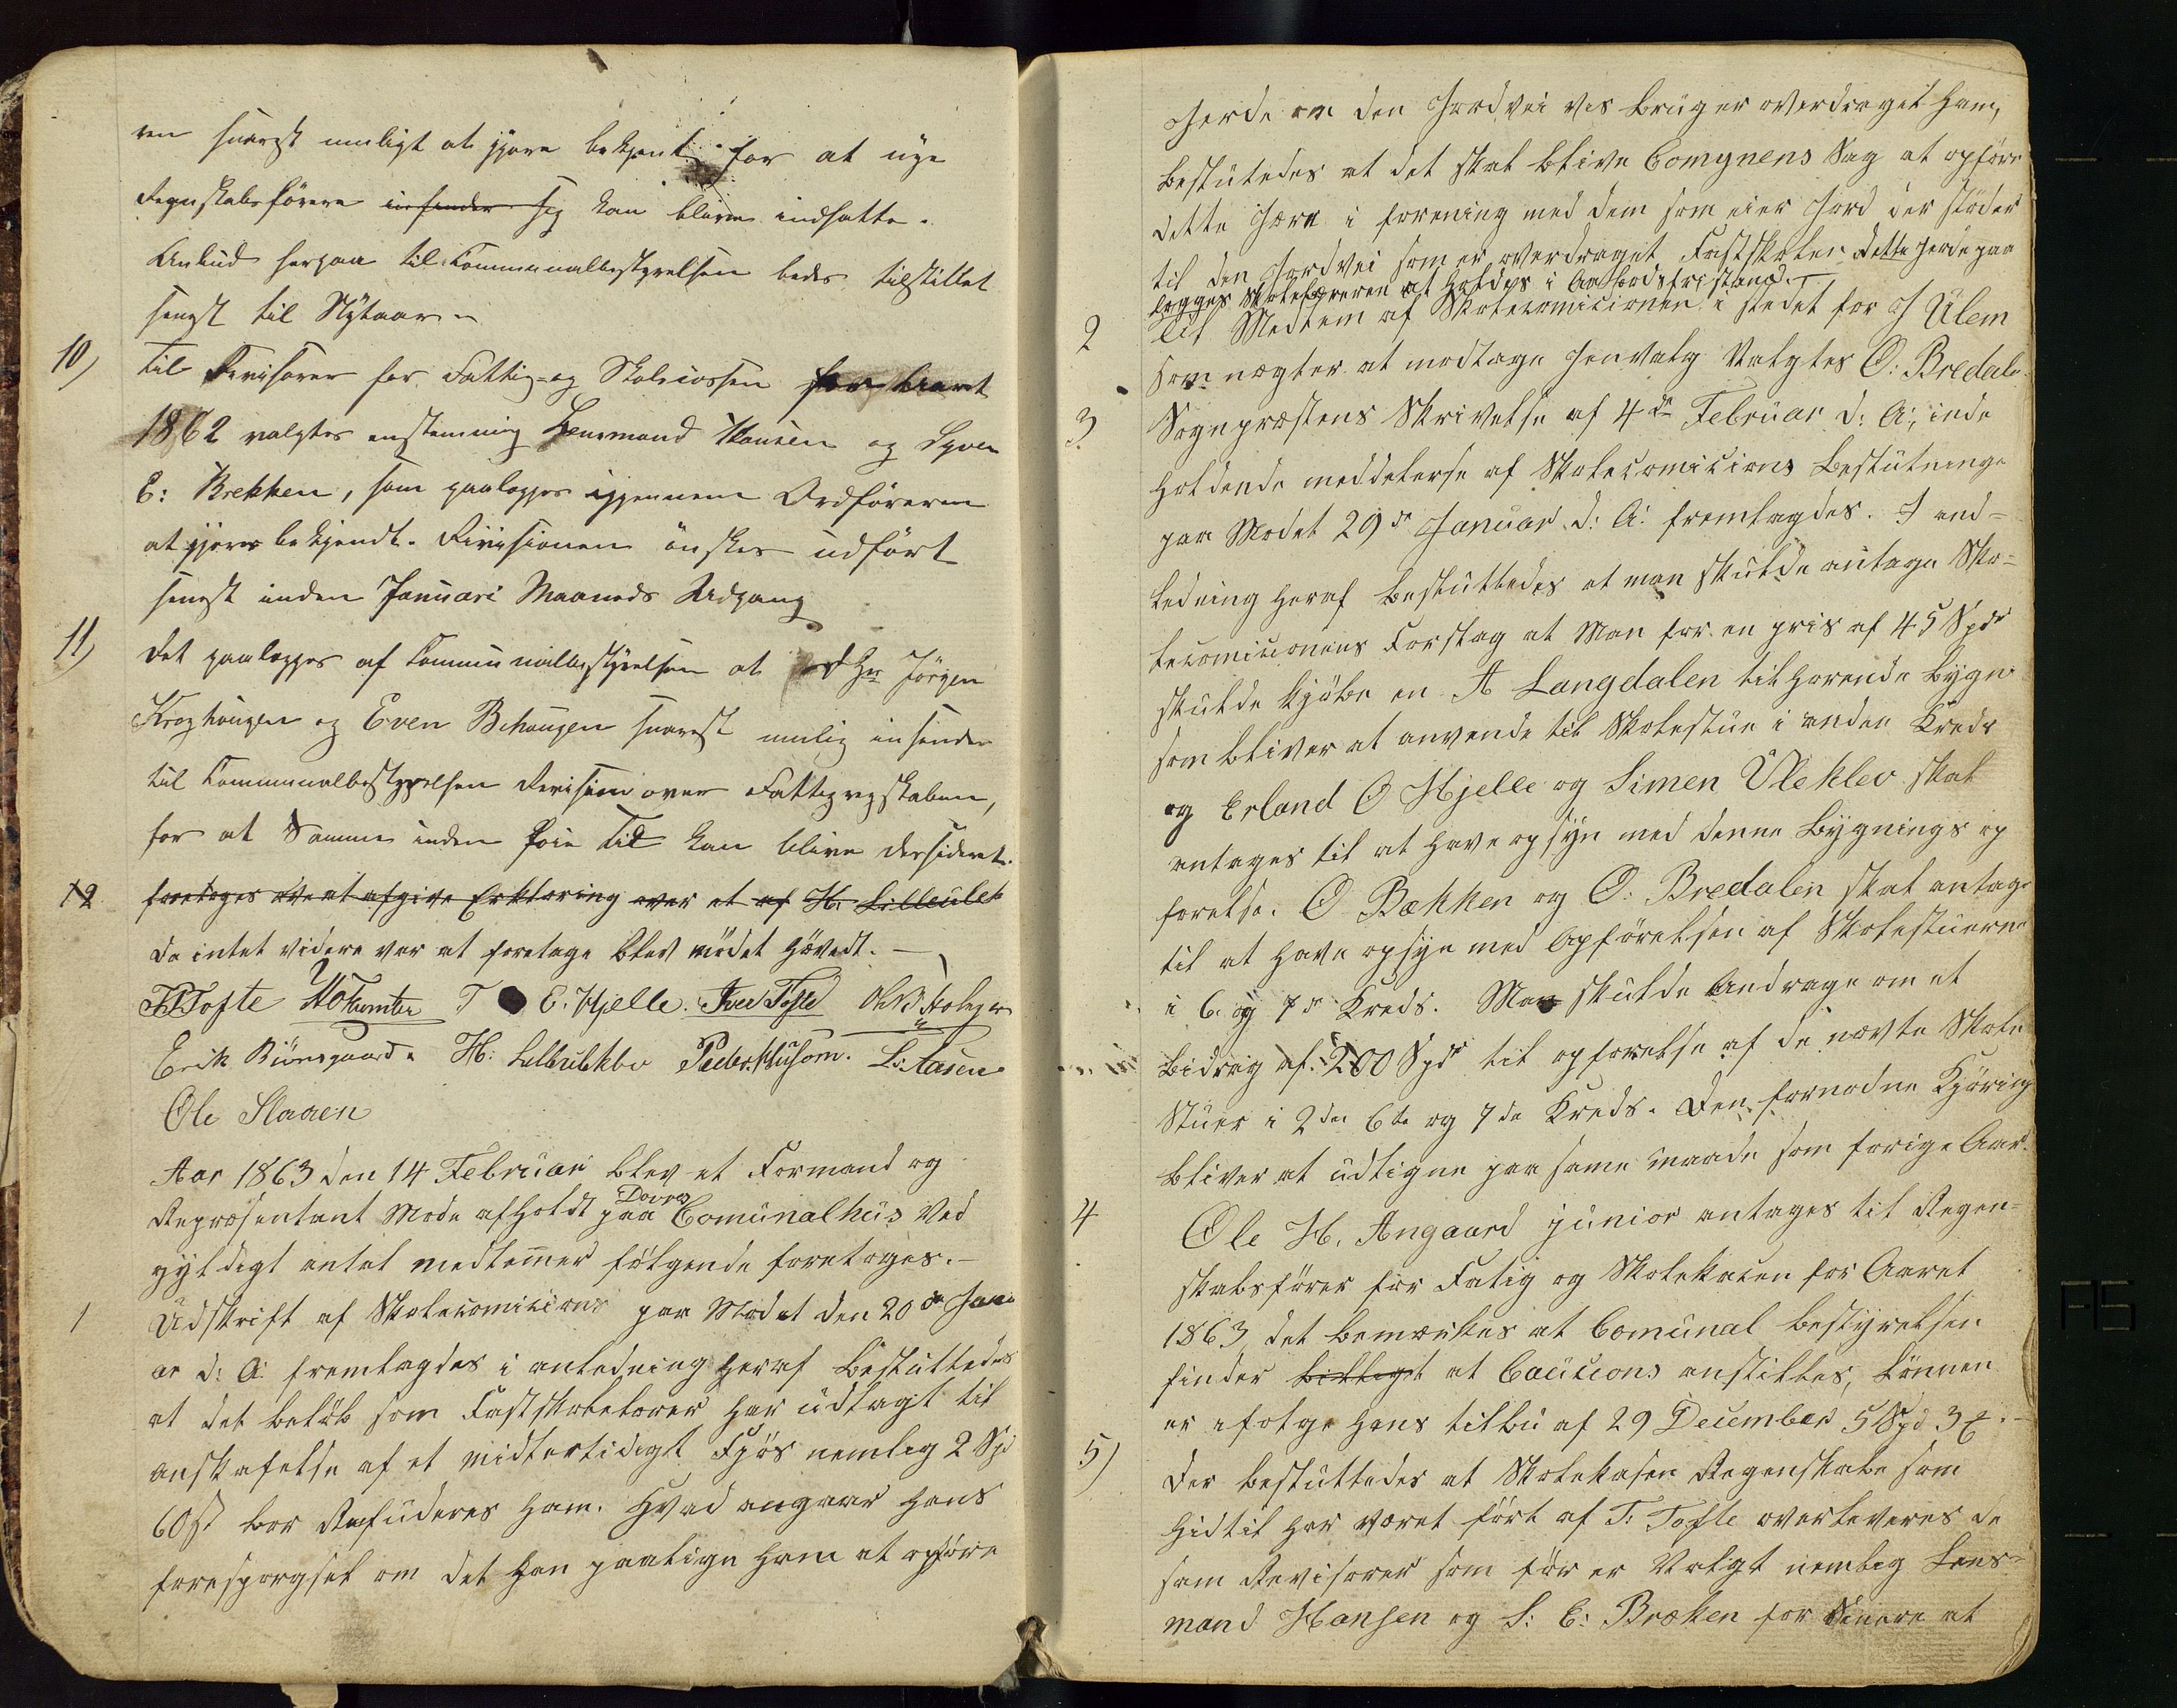 ren snarest muligt at gjøre bekjent for at nye
Regnskabsførere insender sig kan blive indsatte.
Anbud herpaa til Communalbestyrelsen bedes tilstillet
senest til Nytaar.
10) Til Revisorer for Fattig- og Skolecassen for Aaret
1862 valgtes enstemmig Lensmand Hansen og Syver
E: Brekken, som paalægges igjennem Ordföreren
at gjøres bekjendt. Revisionen önskes udfört
senest inden Januari Maaneds Udgang
11) Det paalegges af Communalbestyrelsen at Jörgen
Kroghougen og Even Bihougen snarest mulig insender
til Communalbestyrelsen Revision over Fattigregnskaben,
for at Samme inden föie Tid kan blive desideret.
12 foretoges at afgive Erklæring over et af H. Lilleulek
da intet videre var at foretage blev mödet hævedt. —
T E. Hjelle. Iver Tofte
Erik Büurgaard. H: Lilleuleklev Peder Husom. L: Aasen
Ole Slaaen
Aar 1863 den 14 Februar blev et Formand og
Repræsentant Möde afholdt paa Dovre Comünalhüs Ved
gyldigt antal medlemer fölgende foretoges. —
1 Udskrift af Skolecomicions paa Mödet den 20de Janu
ar d: A: fremlagdes i anledning heraf Besluttedes
at det belöb som Fastskolelærer har udlagt til
anskafelse af et midlertidigt Fjös nemlig 2 Spd
60 s bör Refuderes ham. Hvad angaar hans
foresporgsel om det kan paaligge ham at opföre
Gjerde om den Jordvei vis Brug er overdraget ham,
Beslutedes at det skal blive Comynens Sag at opföre
dette Gjære i forening med dem som eier Jord der stöder
til den Jordvei som er overdraget Fastskolen dette Gjerde paa
legges Skolelæreren at holdes i Anfords fristand. —
2 Til Medlem af Skolecomicionen i stedet for J Ulem
som nægter at modtage Genvalg Valgtes O: Bredale
3 Sognpræstens Skrivelse af 4de Februar d: A:, inde
holdende meddelerse af Skolecomicions Beslutninge
paa Mödet 29de Januar d: A: fremlagdes. I and=
ledning heraf besluttedes at man skulde antage Sko=
lecomicionens Forslag at Man for en pris af 45 Spdr
skulde kjöbe en A Langdalen tilhörende bygn
som bliver at anvende til Skolestue i anden Kreds
og Erland O Hjelle og Simen Üleklev skal
antages til at have opsyn med denne Bygnings op
förelse. O Bækken og O. Bredalen skal antage
til at have opsyn med Opförelsen af Skolestuerne
i 6 og 7de Kreds. Man skulde Andrage om et
Bidrag af 200 Spdr til opförelse af de nævte Skole
Stuer i 2den 6te og 7de Kreds. Den fornödne Kjöring
bliver at üdligne paa same maade som forige Aar.
4 Ole H. Angaard junior antages til Regen=
skabsförer for Fatig og Skolekasen for Aaret
1863, det bemærkes at Comünal bestyrelsen
finder billigst at Cautions anstilles, lönnen
er ifölge hans tilbu af 29 December 5 Spd 3 .—
5) Der besluttedes at Skolekasen Regenskabe som
hidtil har været fört af T: Tofte overleveres de
sam Revisorer som för er Valgt nemlig Lens=
mand Hansen og S: E: Bræken for Senere at